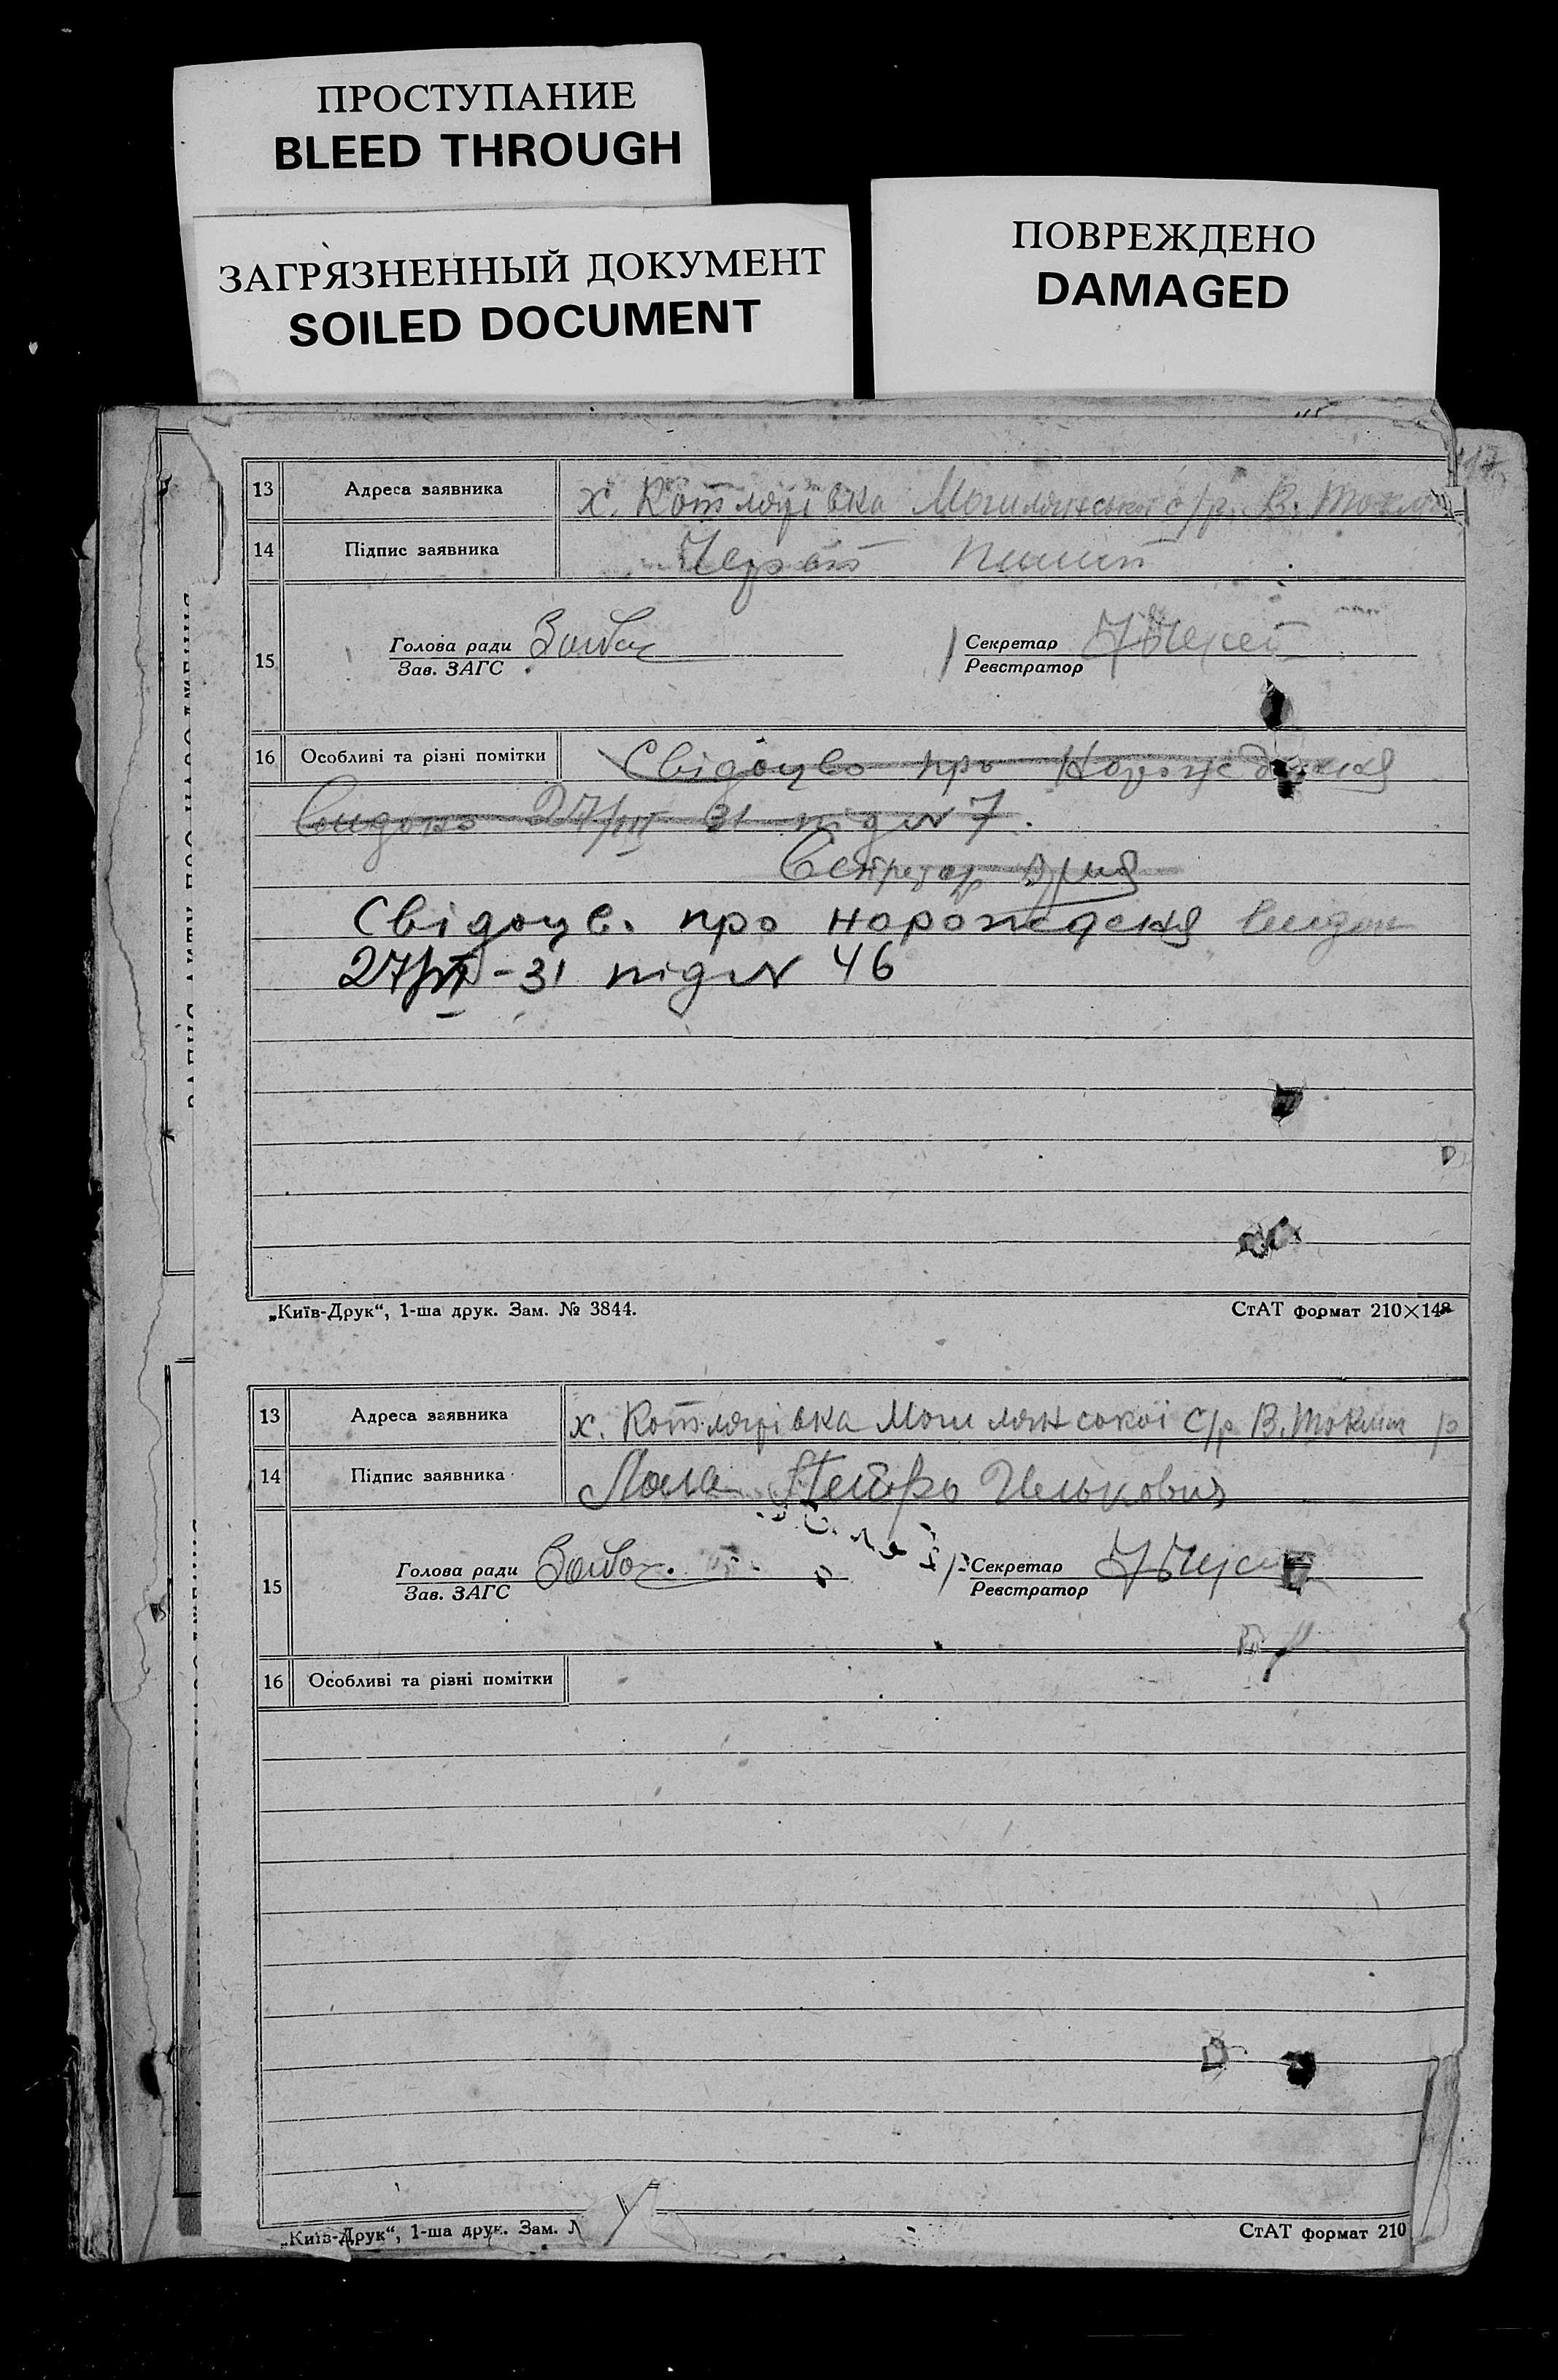 ПРОСТУПАНИЕ
BLEED THROUGH
ЗАГРЯЗНЕННЫЙ ДОКУМЕНТ
SOILED DOCUMENT
ПОВРЕЖДЕНО
DAMAGED
13 Адреса заявника х. Котлярівка с/р. В. Токм
14 Підпис заявника
15 Голова ради Секретар
Зав. ЗАГС Реєстратор
16 Особливі та різні помітки Свідоцво про Народження
видано 27/ 31 під № 7.
Секретар
Свідоцв. про народження видан
27/ -31 під № 46
„Київ-Друк“, 1-ша друк. Зам. № 3844. СтАТ формат 210×148
13 Адреса заявника х. Котлярівка с/р В. Токмак р
14 Підпис заявника Петро
15 Голова ради Секретар
Зав. ЗАГС Реєстратор
16 Особливі та різні помітки
„Київ-Друк“, 1-ша друк. Зам. СтАТ формат 210